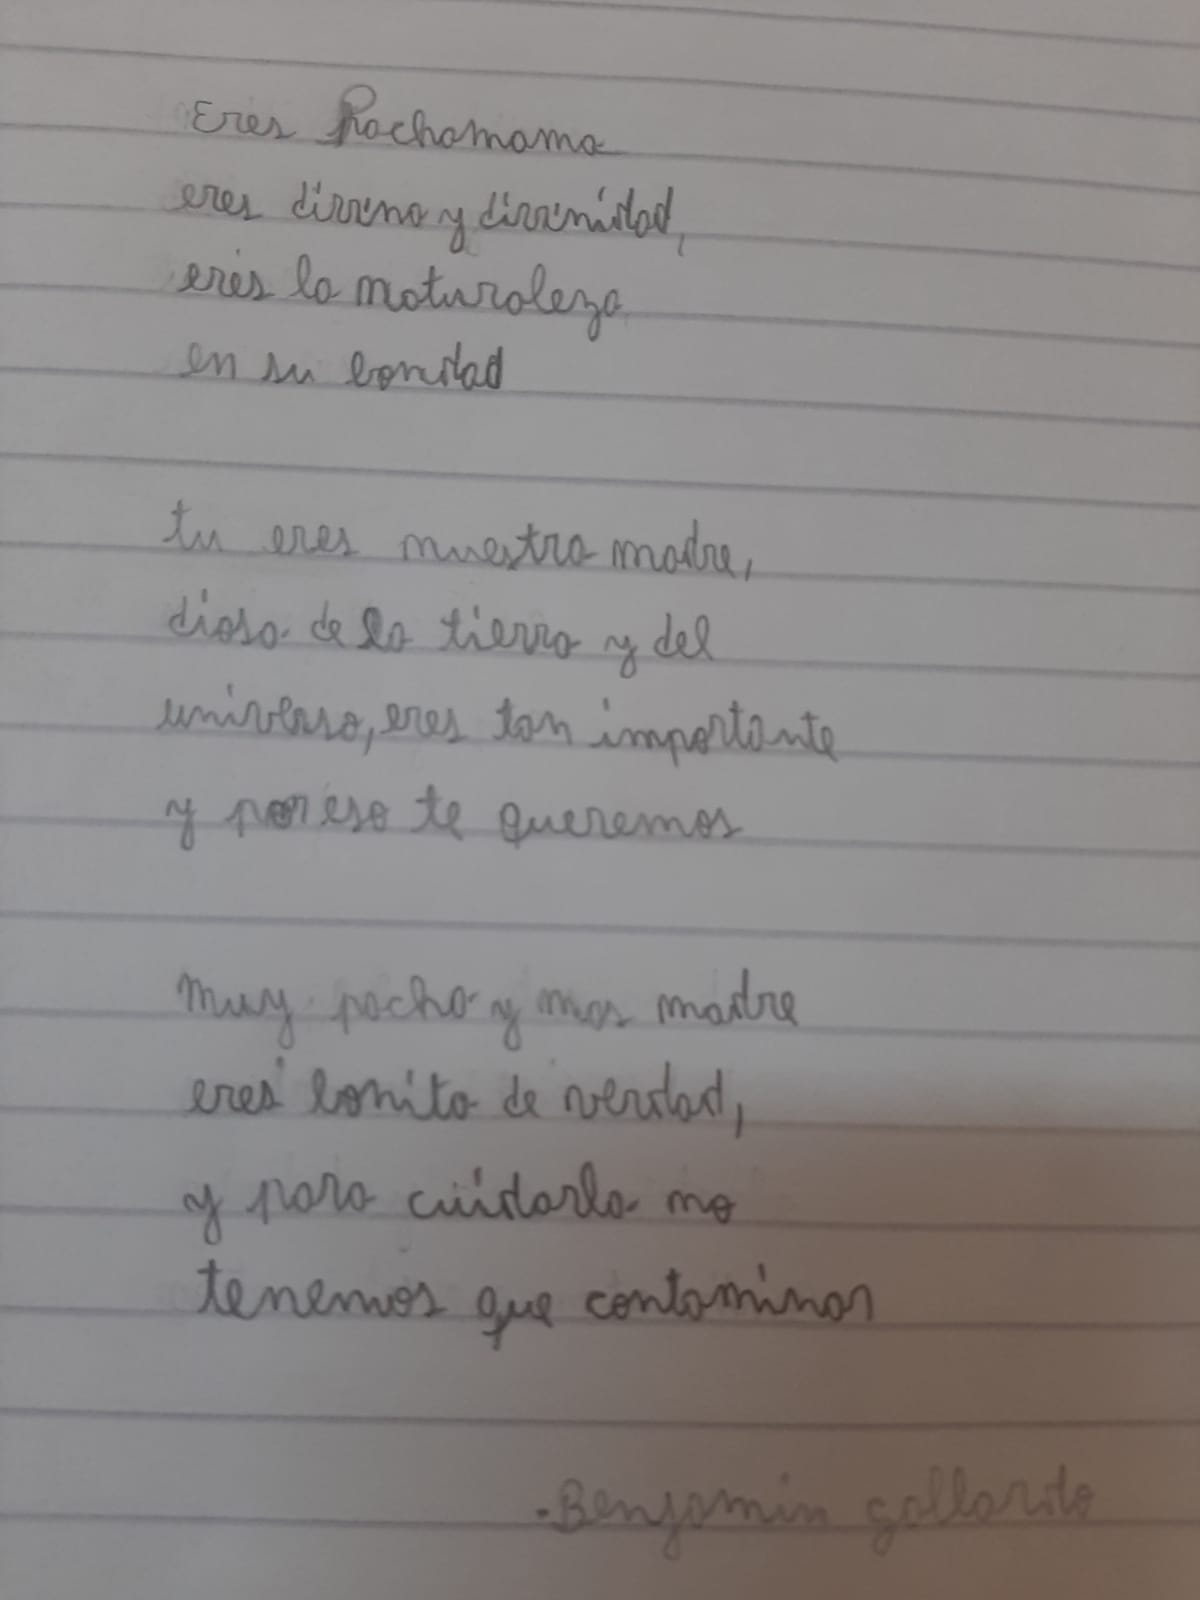 Eres Pachamama
eres divina y divinidad,
eres la naturaleza
en su bondad
tu eres nuestra madre,
diosa de la tierra y del
universo, eres tan importante
y por eso te queremos
muy pacha y mas madre
eres bonita de verdad,
y para cuidarla no
tenemos que contaminar
-Benjamin gallardo